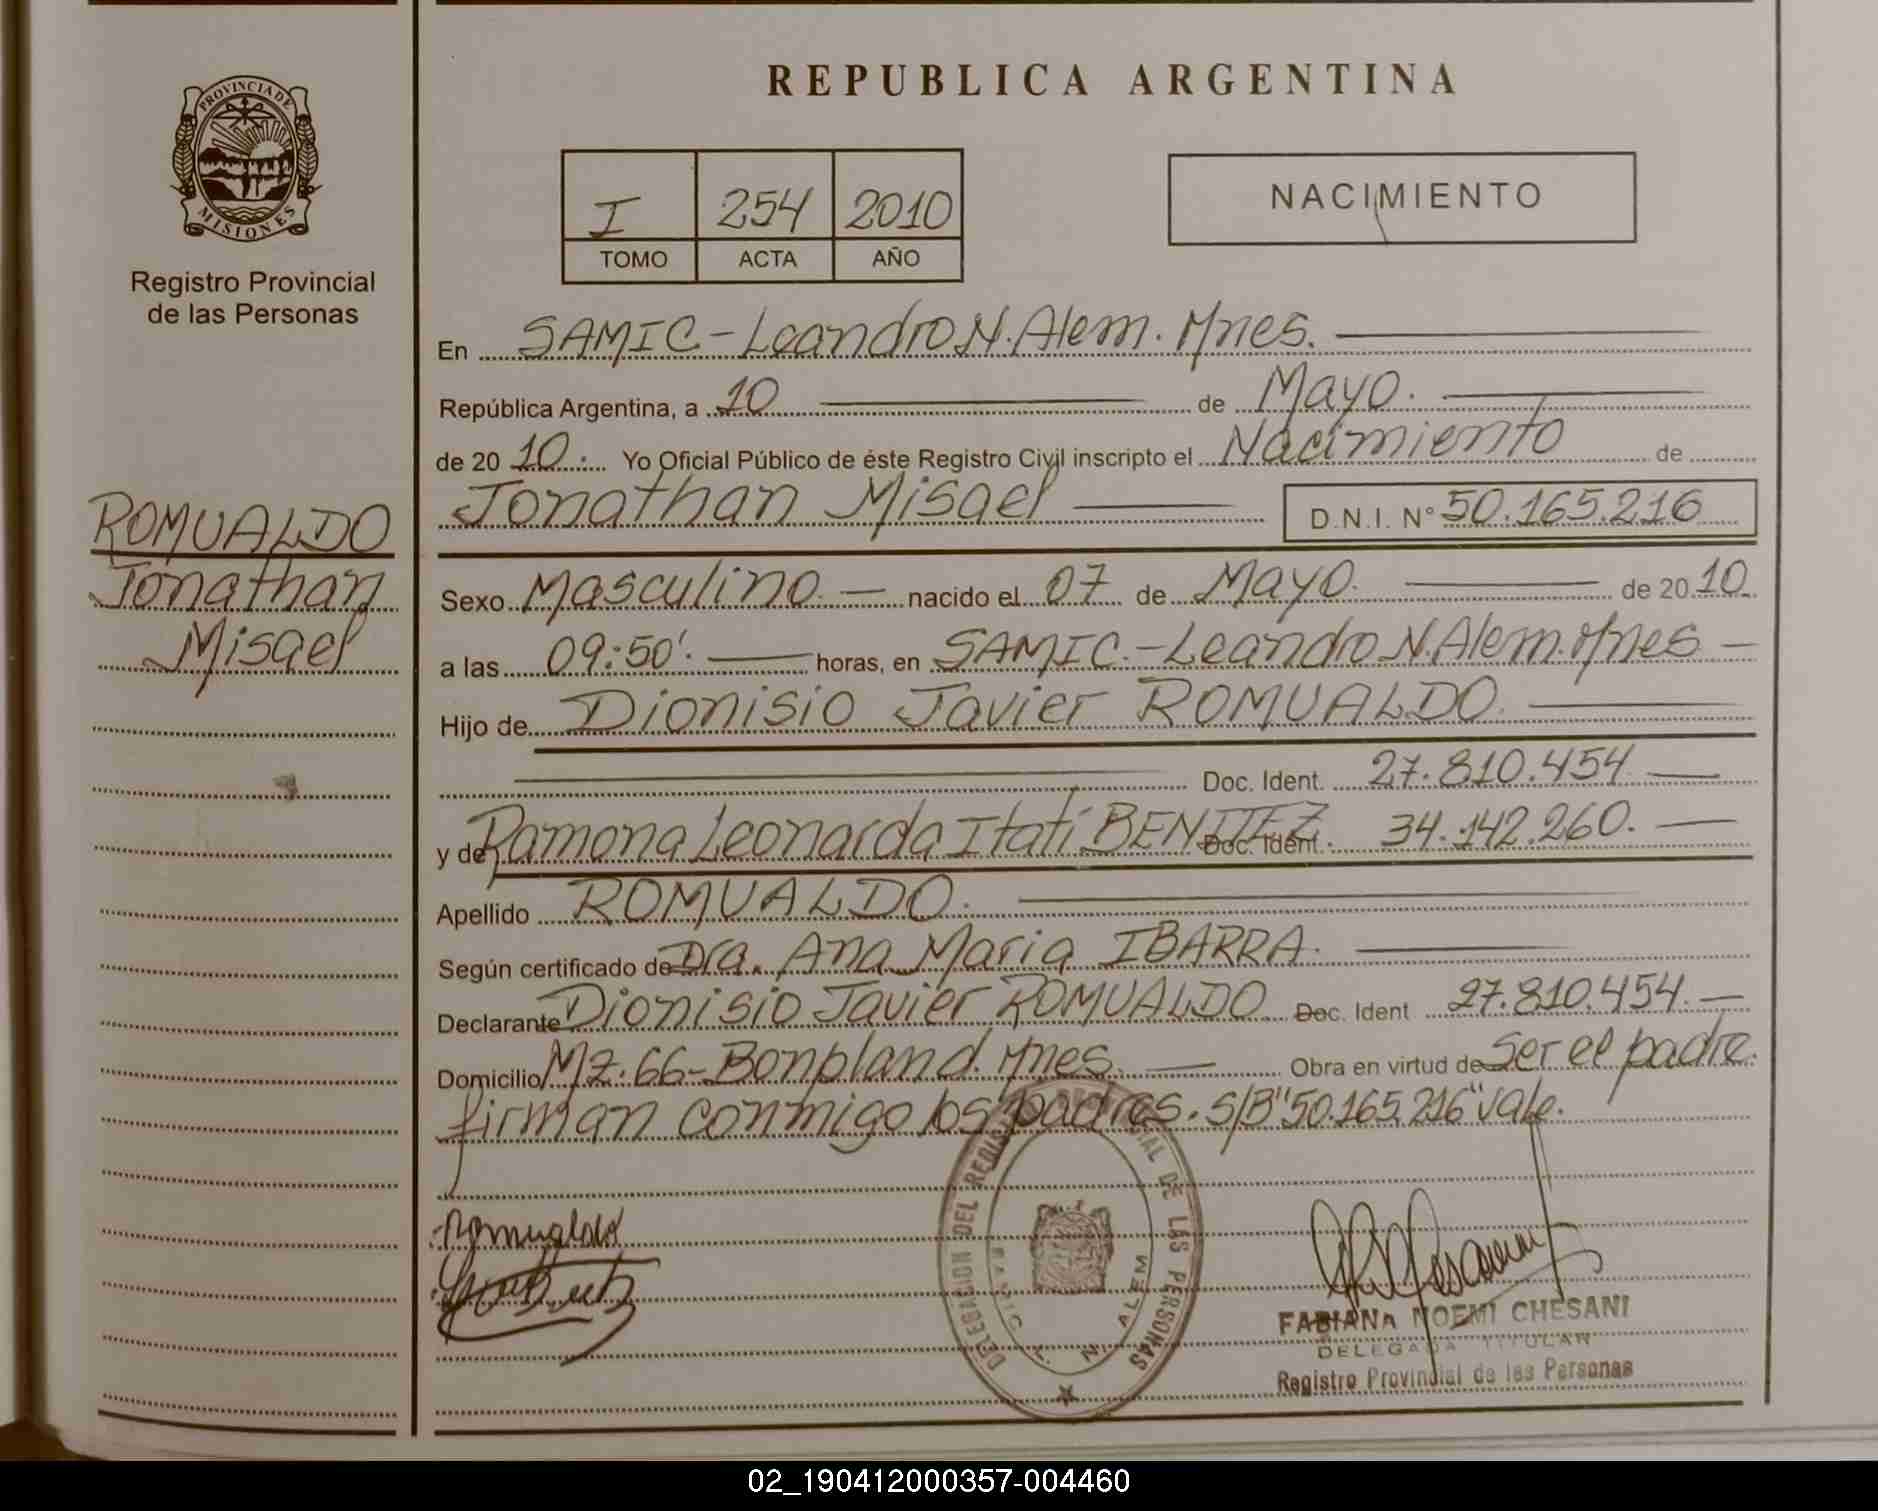 PROVINCIA DE
MISIONES
Registro Provincial
de las Personas
ROMUALDO
Jonathan
Misael
REPUBLICA ARGENTINA
I 254 2010
TOMO ACTA AÑO
NACIMIENTO
En SAMIC-Leandro N. Alem. Mnes.
República Argentina, a 10 de Mayo.
de 20 10. Yo Oficial Público de éste Registro Civil inscripto el Nacimiento de
Jonathan Misael D.N.I. N° 50.165.216
Sexo Masculino nacido el 07 de Mayo. de 20 10.
a las 09:50'. horas, en SAMIC.-Leandro N. Alem. Mnes
Hijo de Dionisio Javier ROMUALDO.
Doc. Ident. 27.810.454
y de Ramona Leonarda Itatí BENITEZ Doc. Ident. 34.142.260.
Apellido ROMUALDO.
Según certificado de Dra. Ana Maria IBARRA.
Declarante Dionisio Javier ROMUALDO Doc. Ident 27.810.454.
Domicilio Mz. 66-Bonpland. Mnes. Obra en virtud de Ser el padre.
firman conmigo los padres. s/B "50.165.216" vale.
Romualdo
DELEGACION DEL REGISTRO PROVINCIAL DE LAS PERSONAS
SAMIC L. N. ALEM
FABIANA NOEMI CHESANI
DELEGADA TITULAR
Registro Provincial de las Personas
02_190412000357-004460